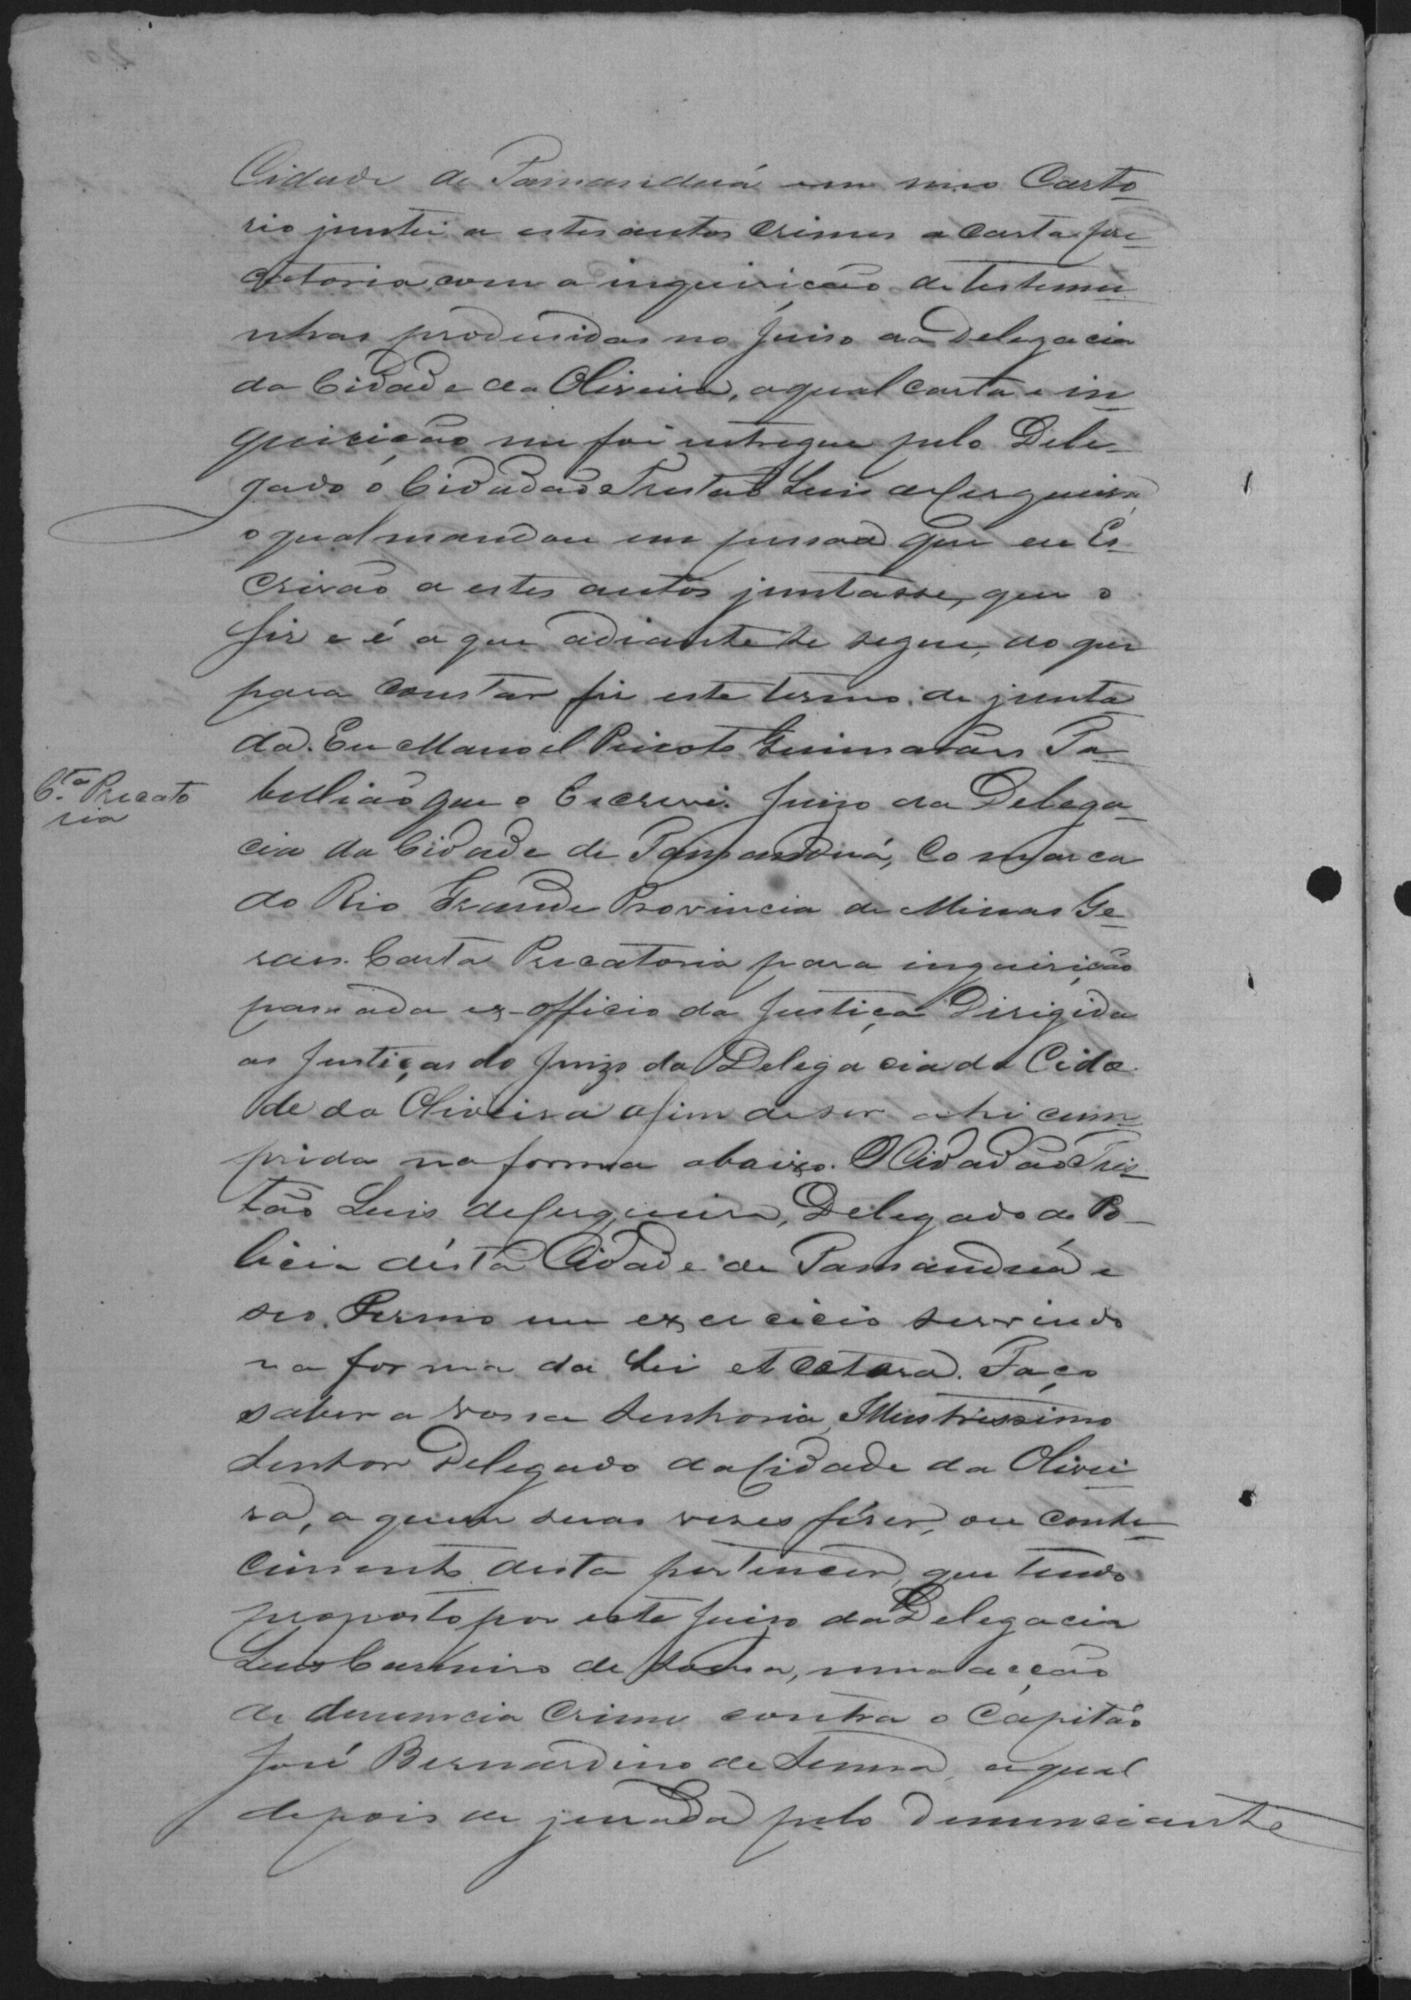 Cidade de Tamanduá em meo Carto-
rio juntei a estes autos crimes a carta pre-
catoria com a inquirição de testemu-
nhas produsidas no Juiso da Delegacia
da Cidade da Oliveira, a qual carta e in-
quirição me foi entregue pelo Dele-
gado o Cidadão Tristão Luis de Cerqueira,
o qual mandou em pessoa que eu Es-
crivão a estes autos juntasse, que o
fiz e é a que adiante se segue, do que
para constar fiz este termo de junta-
da. Eu Manoel Peixoto Guimarães Ta-
bellião que o Escrevi. Juizo da Delega-
C.ta Precato
ria
cia da Cidade de Tamanduá, Comarca
do Rio Grande Provincia de Minas Ge-
raes. Carta Precatoria para inquirição
passada ex-officio da Justiça Dirigida
as Justiças do Juizo da Delegacia da Cida-
de da Oliveira afim de ser ahi cum-
prida na forma abaixo. O Cidadão Tris-
tão Luis de Cerqueira, Delegado de Po-
licia désta Cidade de Tamanduá e
seo Termo em exercicio servindo
na forma da Lei et Cetera. Faço
saber a Vossa Senhoria, Illustrissimo
Senhor Delegado da Cidade da Olivei-
ra, a quem suas veses fiser, ou conhe-
cimento desta pertencer, que tendo
proposto por este Juiso da Delegacia
Luis Casimiro de Sousa, uma acção
de denuncia Crime contra o Capitão
José Bernardino de Senna, a qual
depois de jurada pelo denunciante